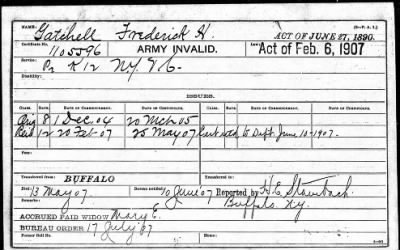 (3-P.A.)
NAME: Gatchell Frederick H. ACT OF JUNE 27, 1890.
Certificate No. 1105596 ARMY INVALID. Act of Feb. 6, 1907
Service: Pr K 12 N.Y. V.C.
Disability:
ISSUES.
CLASS. RATE. DATE OF COMMENCEMENT. DATE OF CERTIFICATE. CLASS. RATE. DATE OF COMMENCEMENT. DATE OF CERTIFICATE.
Orig 8 1 Dec. 04 20 Mch 05
12 20 Feb 07 25 May 07 to Dept. June 10-1907.
Fee:
Transferred from BUFFALO Transferred from
13 May 07 10 June 07 Reported by H.E.
Buffalo Ny.
ACCRUED PAID WIDOW Mary E.
BUREAU ORDER 17 July 07
Former Roll No. Home